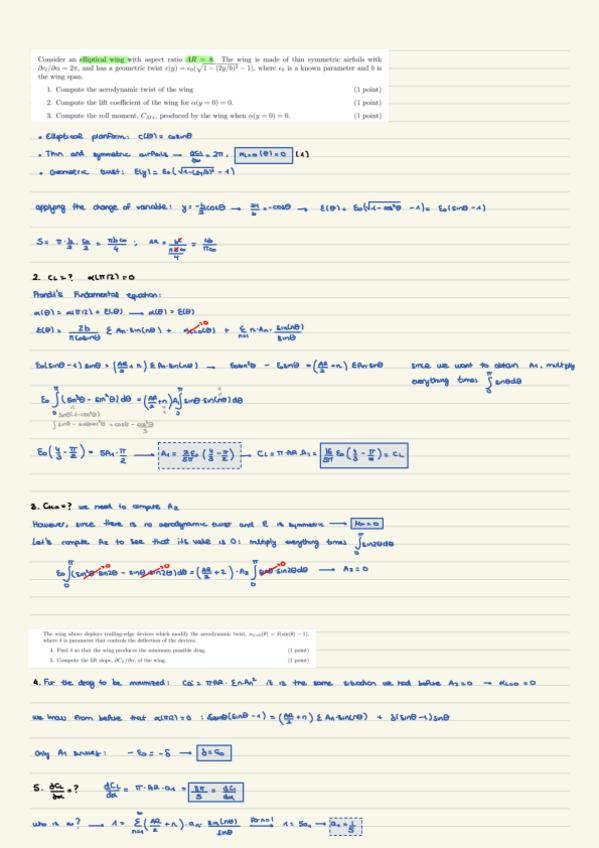 Consider an elliptical wing with aspect ratio AR = 8. The wing is made of thin symmetric airfoils with
∂cₗ/∂α = 2π, and has a geometric twist ε(y) = ε₀(√(1 − (2y/b)²) − 1), where ε₀ is a known parameter and b is
the wing span.
1. Compute the aerodynamic twist of the wing (1 point)
2. Compute the lift coefficient of the wing for α(y = 0) = 0. (1 point)
3. Compute the roll moment, produced by the wing when α(y = 0) = 0. (1 point)
• Elliptical planform: c(θ) = c₀sinθ
• Thin and symmetric airfoils → ∂Cl/∂α = 2π, α_{L=0}(θ) = 0 (1)
• Geometric twist: ε(y) = ε₀(√(1-(2y/b)²) - 1)
applying the change of variable: y = -b/2 cosθ → 2y/b = -cosθ → ε(θ) = ε₀(√(1-cos²θ) - 1) = ε₀(sinθ - 1)
S = π · b/2 · c₀/2 = πbc₀/4 ; AR = b²/(πbc₀/4) = 4b/πc₀
2. CL = ? α(π/2) = 0
Prandtl's Fundamental equation:
α(θ) = α(π/2) + ε(θ) → α(θ) = ε(θ)
ε(θ) = 2b/(πc₀sinθ) Σ An·sin(nθ) + α_{L=0}(θ) →0 + Σ n·An· sin(nθ)/sinθ
ε₀(sinθ - 1) sinθ = (AR/2 + n) Σ An·sin(nθ) → ε₀sin²θ - ε₀sinθ = (AR/2 + n) ΣAn sinnθ since we want to obtain A₁, multiply
everything times ∫₀^π sinθdθ
ε₀ ∫₀^π (sin³θ - sin²θ) dθ = (AR/2 + n) A₁ ∫₀^π sinθ·sin(nθ) dθ
sinθ(1-cos²θ)
ε₀(4/3 - π/2) = 5A₁·π/2 → A₁ = 2ε₀/5π (4/3 - π/2) → CL = π AR A₁ = 16/5 ε₀(4/3 - π/2) = CL
we need to compute A₂
However, since there is no aerodynamic twist and ε is symmetric →
Let's compute A₂ to see that its value is 0: multiply everything times ∫₀^π sin2θdθ
ε₀ ∫₀^π (sin²θ·sin2θ →0 - sinθ·sin2θ →0) dθ = (AR/2 + 2) · A₂ ∫₀^π sin2θ·sin2θdθ → A₂ = 0
The wing above deploys trailing-edge devices which modify the aerodynamic twist, α_{L=0}(θ) = δ(sin(θ) − 1),
where δ is parameter that controls the deflection of the devices.
4. Find δ so that the wing produces the minimum possible drag. (1 point)
5. Compute the lift slope, ∂C_L/∂α, of the wing. (1 point)
4. For the drag to be minimized: CDi = πAR · Σ n·An² it is the same situation we had before A₂=0 →
we know from before that α(π/2) = 0 : ε₀sinθ(sinθ-1) = (AR/2 + n) Σ An·sin(nθ) + δ(sinθ-1)sinθ
Only A₁ survives: - ε₀ = -δ → δ = ε₀
5. ∂CL/∂α = ? dCL/dα = π·AR·a₁ = 8π/5 = dCL/dα
who is a₁? → 1 = Σ (AR/2 + n) · an · sin(nθ)/sinθ for n=1 → 1 = 5a₁ → a₁ = 1/5